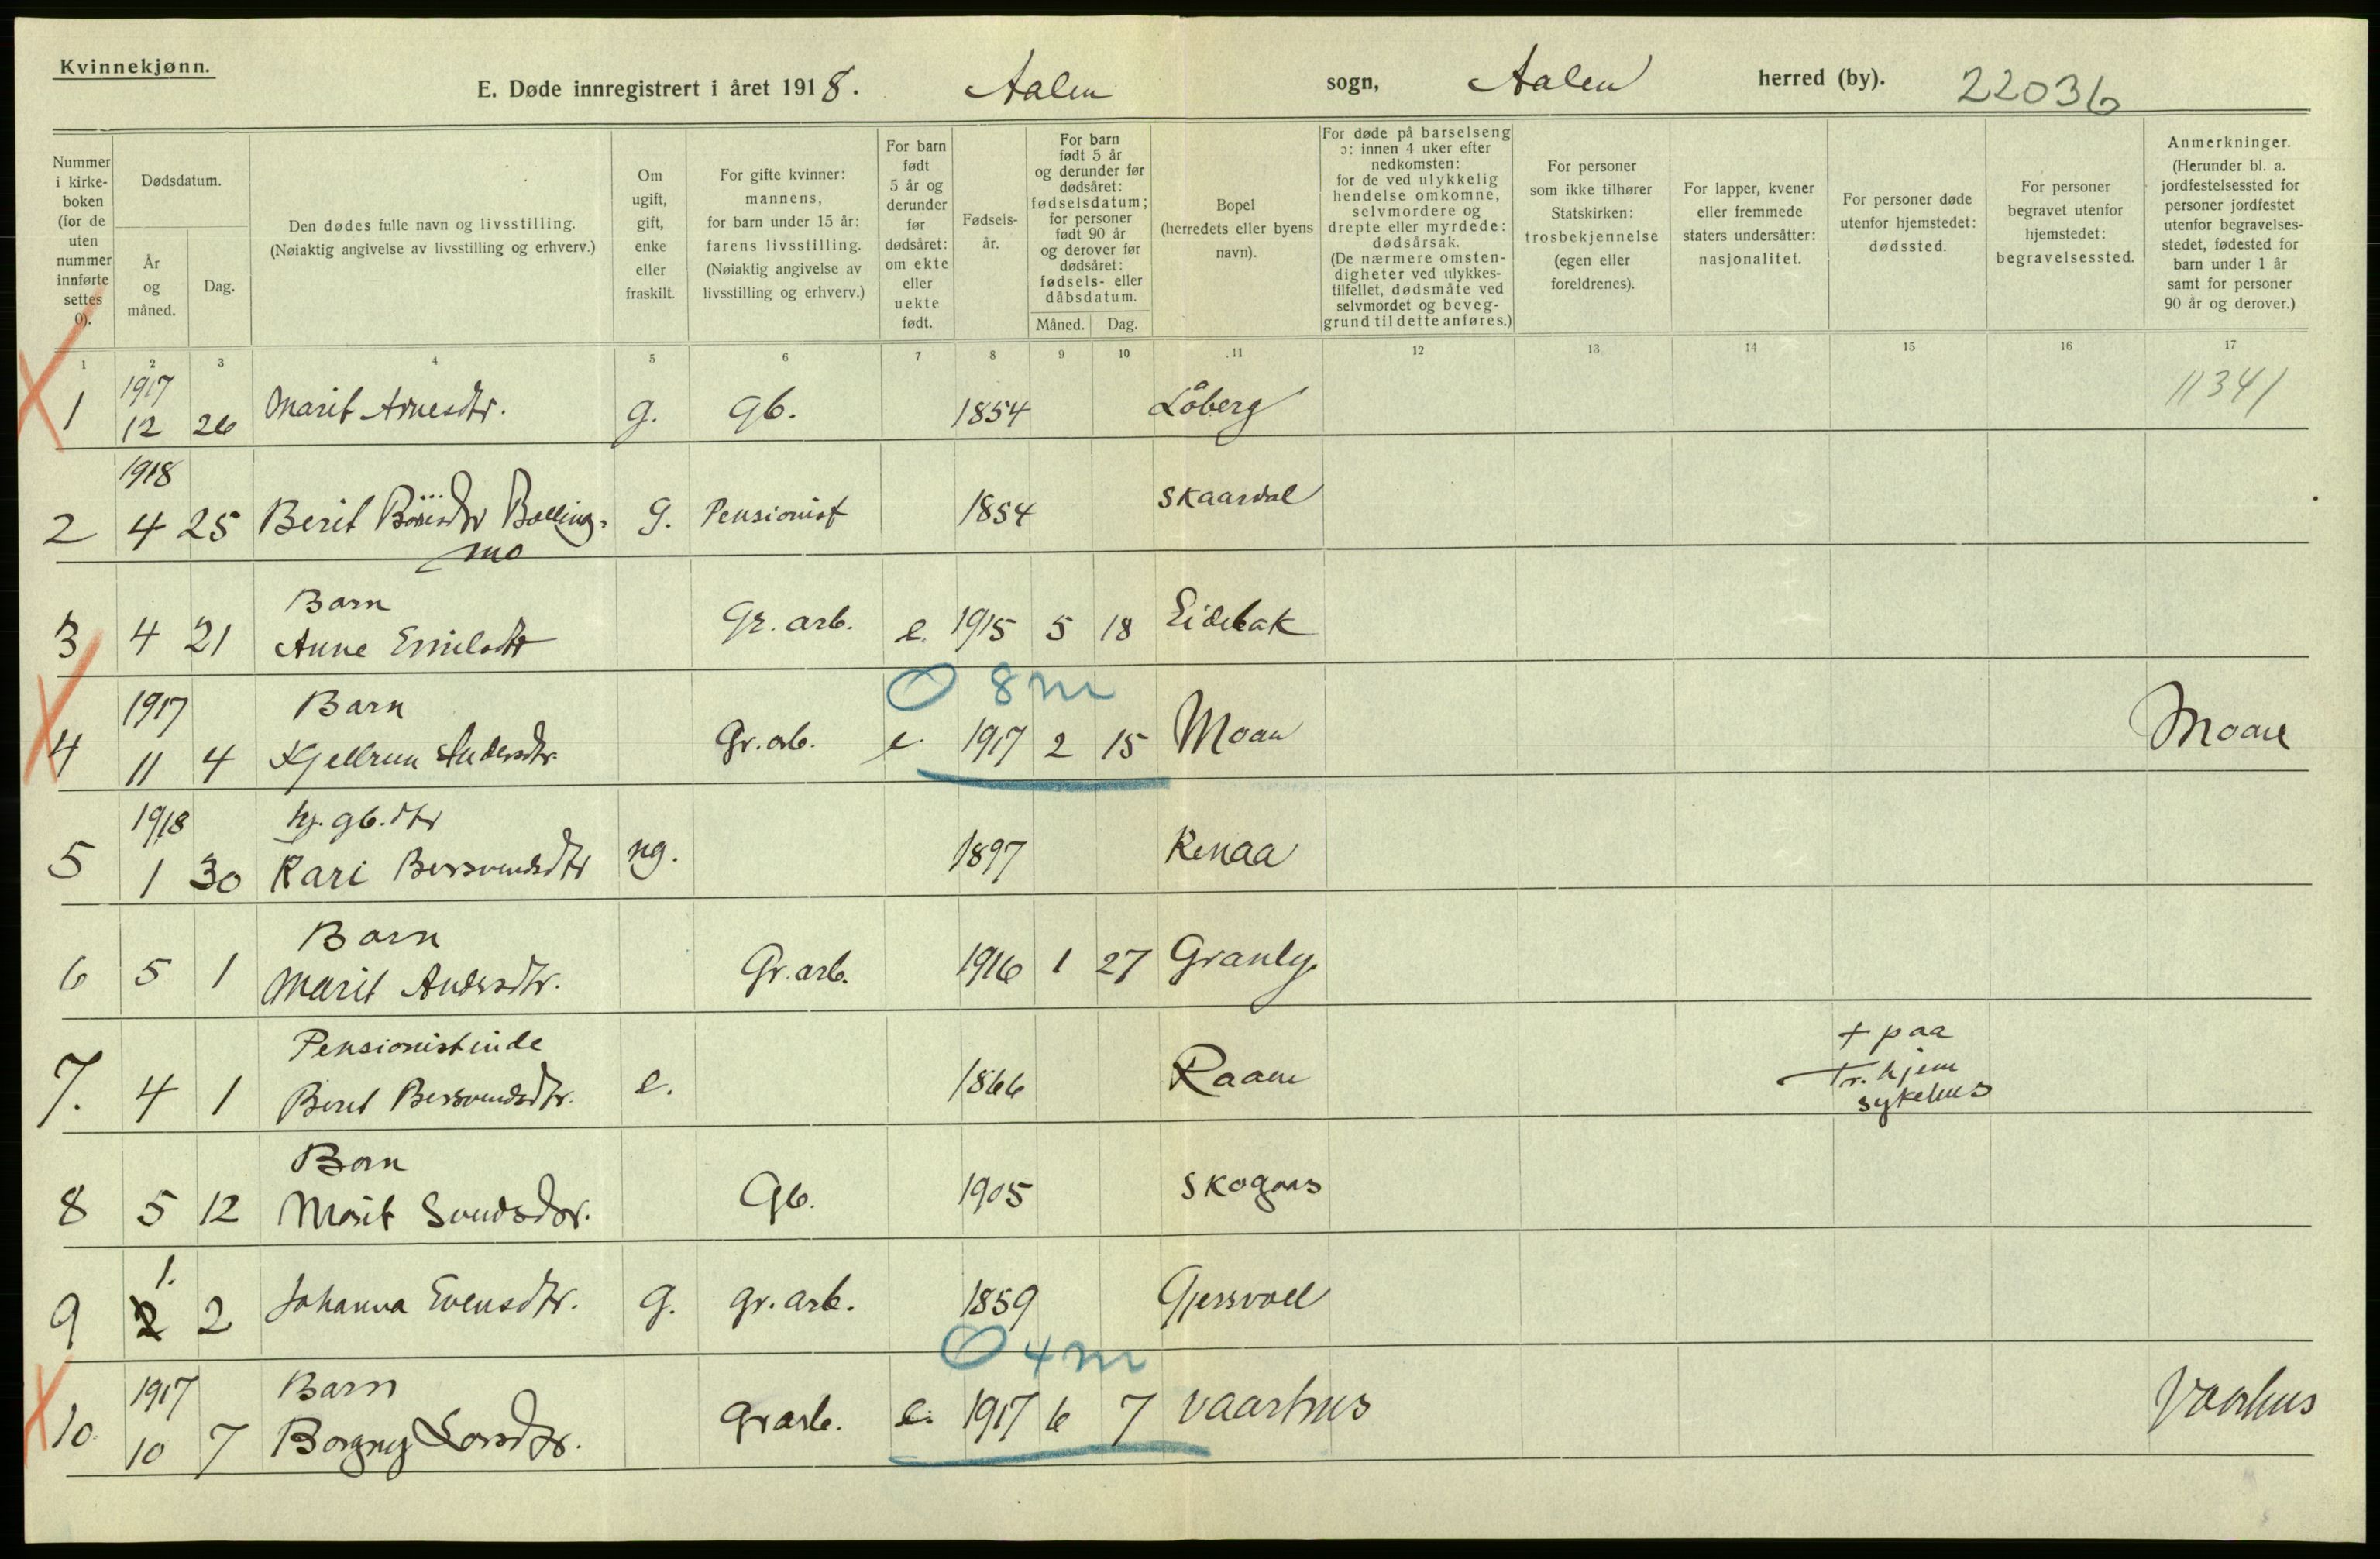 Kvinnekjønn.
E. Døde innregistrert i året 1918. Aalen sogn, Aalen herred (by). 22036
Nummer i kirke-boken (for de uten nummer innførte settes 0).
Dødsdatum.
År og måned.
Dag.
Den dødes fulle navn og livsstilling.
(Nøiaktig angivelse av livsstilling og erhverv.)
Om ugift, gift, enke eller fraskilt.
For gifte kvinner: mannens, for barn under 15 år: farens livsstilling. (Nøiaktig angivelse av livsstilling og erhverv.)
For barn født 5 år og derunder før dødsåret: om ekte eller uekte født.
Fødsels-år.
For barn født 5 år og derunder før dødsåret: fødselsdatum; for personer født 90 år og derover før dødsåret: fødsels- eller dåbsdatum.
Måned. Dag.
Bopel (herredets eller byens navn).
For døde på barselseng ɔ: innen 4 uker efter nedkomsten: for de ved ulykkelig hendelse omkomne, selvmordere og drepte eller myrdede: dødsårsak. (De nærmere omsten-digheter ved ulykkes-tilfellet, dødsmåte ved selvmordet og beveg-grund til dette anføres.)
For personer som ikke tilhører Statskirken: trosbekjennelse (egen eller foreldrenes).
For lapper, kvener eller fremmede staters undersåtter: nasjonalitet.
For personer døde utenfor hjemstedet: dødssted.
For personer begravet utenfor hjemstedet: begravelsessted.
Anmerkninger. (Herunder bl. a. jordfestelsessted for personer jordfestet utenfor begravelses-stedet, fødested for barn under 1 år samt for personer 90 år og derover.)
1 2 3 4 5 6 7 8 9 10 11 12 13 14 15 16 17
1917
1 12 26 Marit Arnesdtr. g. gb. 1854 Låberg 11341
1918
2 4 25 Berit Bolling- g. Pensionist 1854 Skaardal
mo
Barn
3 4 21 Anne Emilsdtr Gr. arb. e. 1915 5 18 Eidebak
O 8 m
1917 Barn
4 11 4 Kjellrun Andersdtr. Gr. arb. e. 1917 2 15 Moan Moan
1918 hj. gb. dtr
5 1 30 Kari Bersvendsdtr ug. 1897 Renaa
Barn
6 5 1 Marit Andersdtr. Gr. arb. 1916 1 27 Granly
Pensionistinde + paa
7. 4 1 Beret Bersvendsdtr. e. 1866 Raaen Tr. hjem
sykehus
Barn
8 5 12 Marit Svendsdtr. Gb. 1905 Skogaas
1.
9 2 2 Johanna Evensdtr. g. gr. arb. 1859 Gjersvoll
O 4 m
1917 Barn
10 10 7 Borgny Larsdtr. Gr arb. e. 1917 6 7 Vaarhus Vaarhus